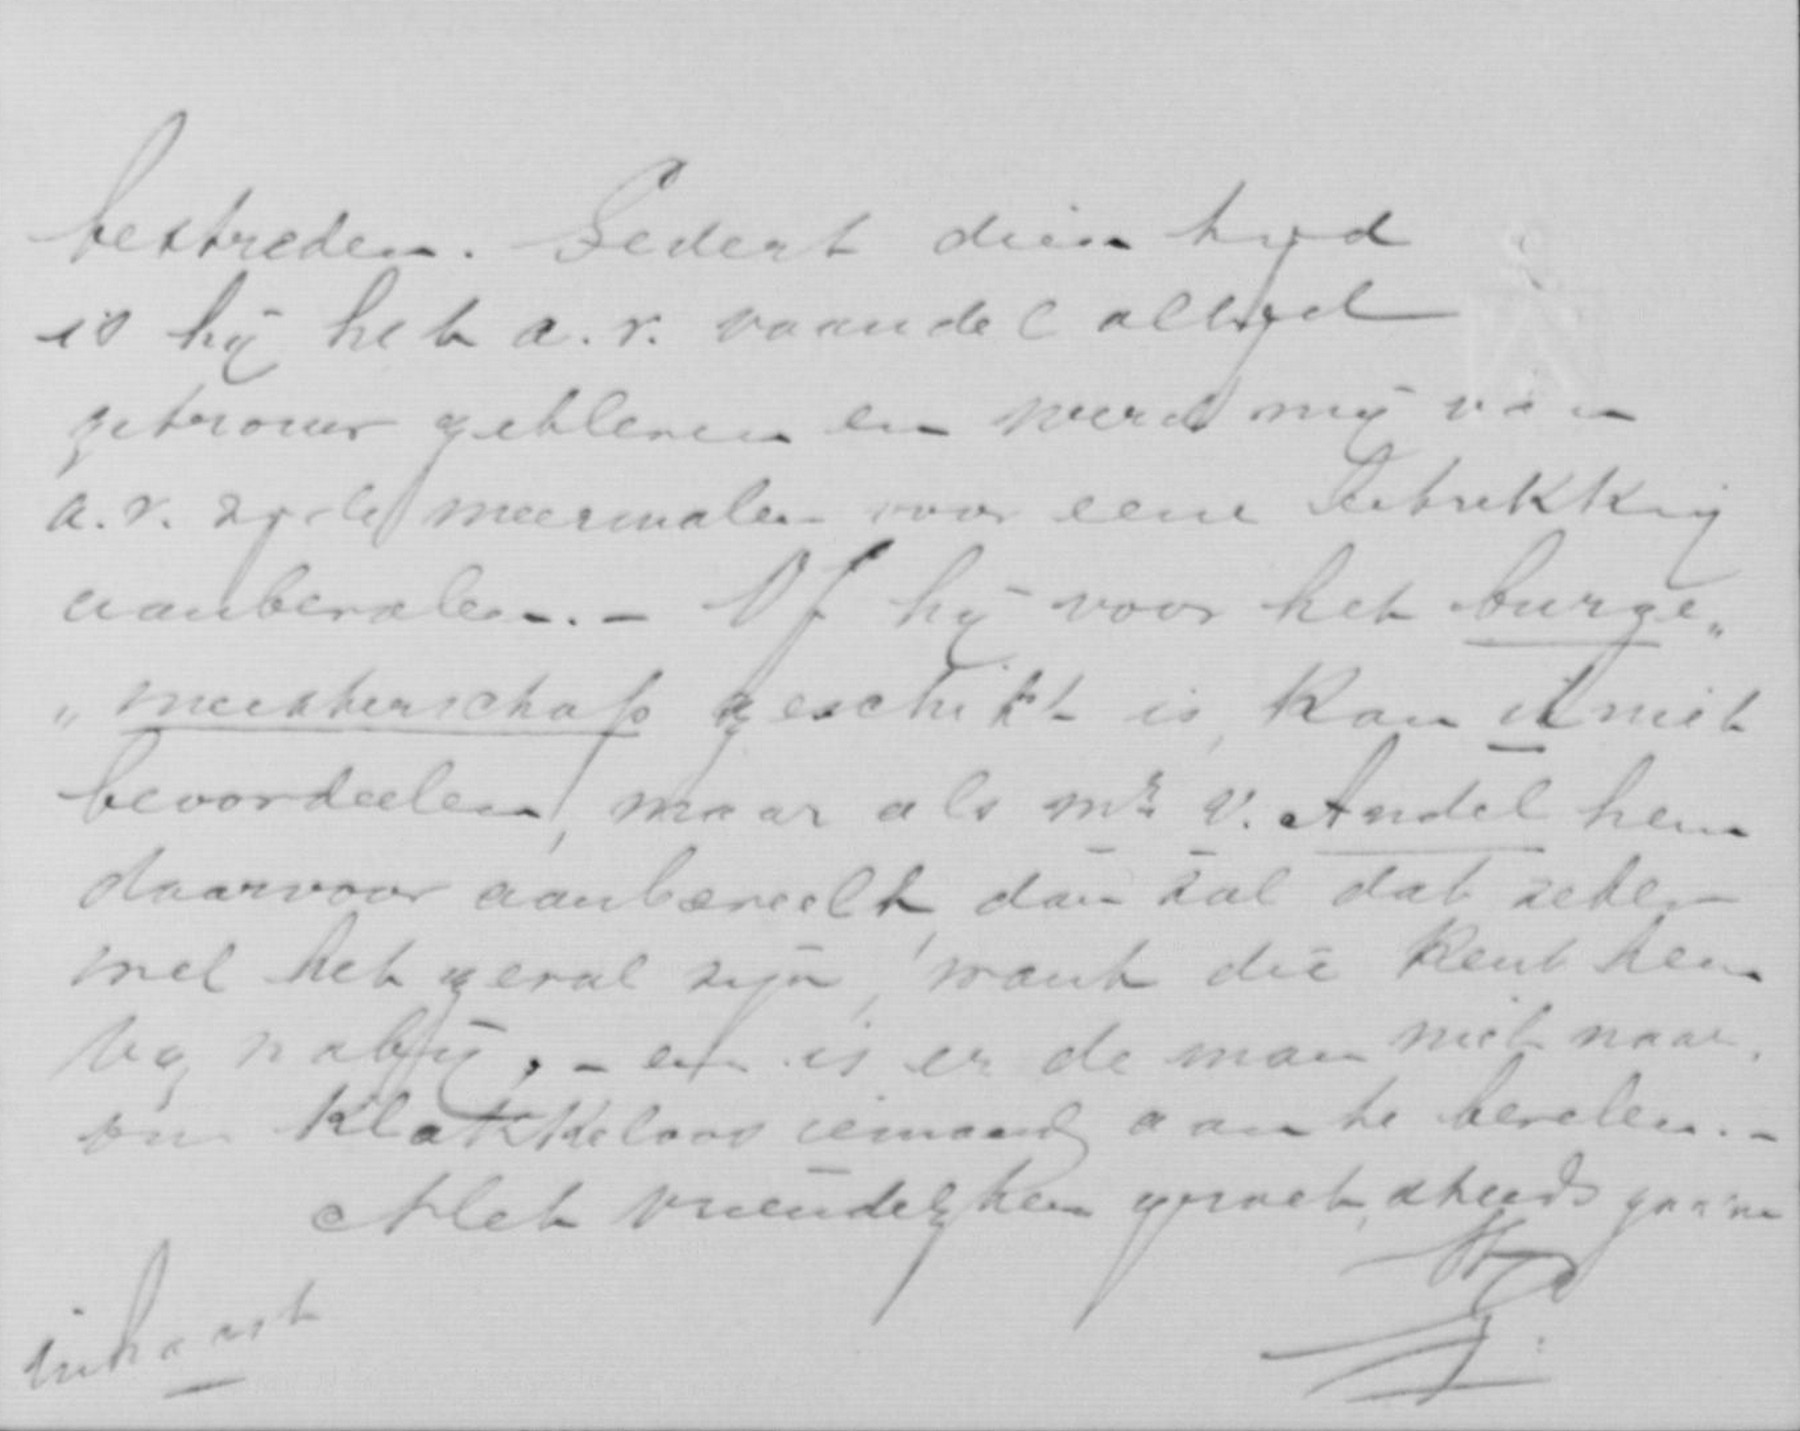 bestreden. Sedert dien tijd
is hij het a.r. vaandel altijd
getrouw gebleven en werd mij van
a.r. zijde meermalen voor eene betrekking
aanbevolen. – Of hij voor het burge„
„meesterschap geschikt is, kan ik niet
beoordeelen, maar als Mr. v. Andel hem
daarvoor aanbeveelt, dan zal dat zeker
wel het geval zijn, want die kent hem
van nabij, – en is er de man niet naar,
om klakkeloos iemand aan te bevelen. –
Met vriendelijken groet, steeds gaarne
in haast